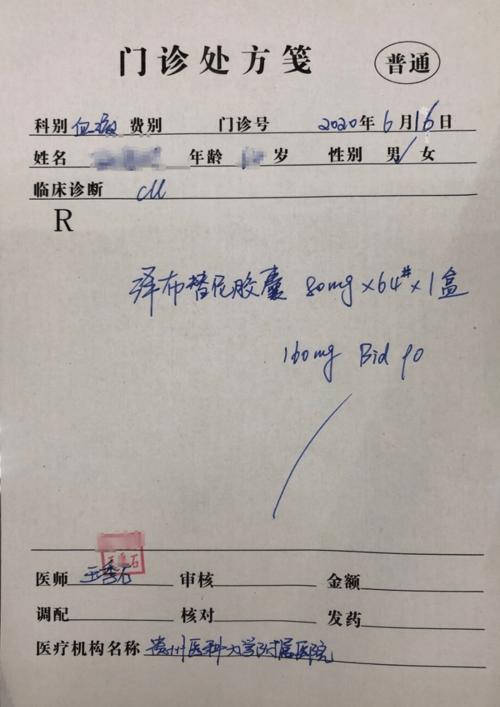 门诊处方笺 普通
科别 血液 费别 门诊号 2020年6月16日
姓名 年龄 岁 性别 男/女
临床诊断
R
泽布替尼胶囊 80mg×64#×1盒
160mg Bid po
医师 王季石 审核 金额
调配 核对 发药
医疗机构名称 贵州医科大学附属医院